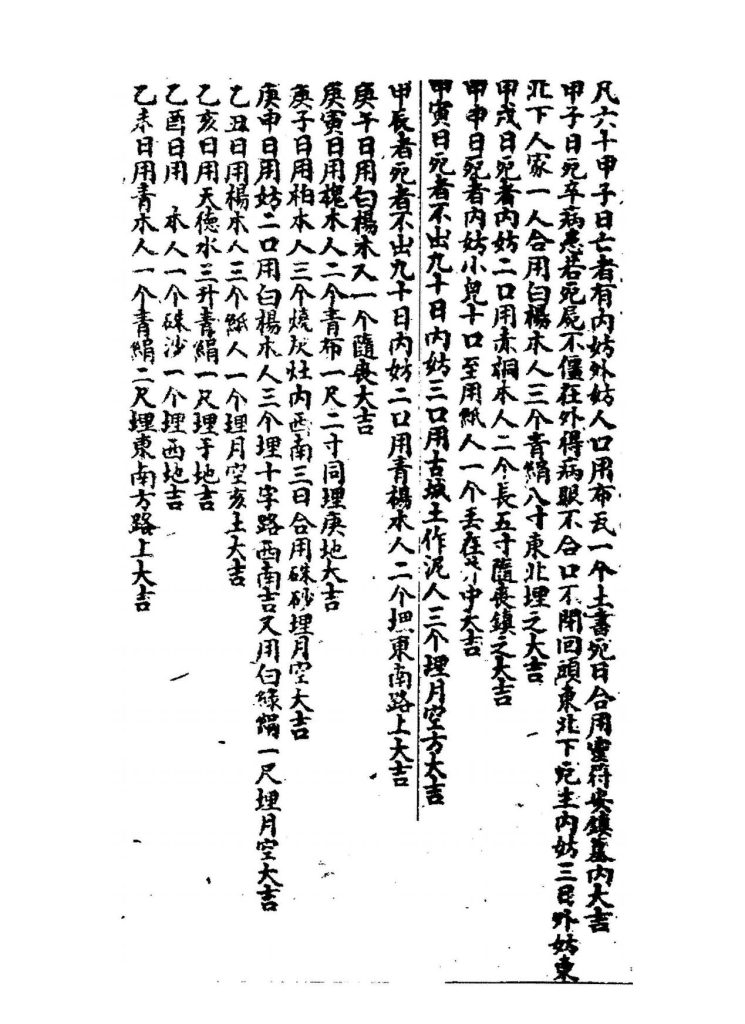 凡六十甲子日亡者有内妨外妨人口用布瓦一个上書死日合用靈符安鎮墓内大吉
甲子日死卒病患若死屍不僵在外得病眼不合口不閉回頭東北下死主内妨三日外妨東
北下人家一人合用白楊木人三个青絹八寸東北埋之大吉
甲戌日死者内妨二口用赤桐木人二个長五寸隨喪鎮之大吉
甲申日死者内妨小兒十口至用紙人一个丢在中大吉
甲寅日死者不出九十日内妨三口用古城土作泥人三个埋月空方大吉
甲辰者死者不出九十日内妨二口用青楊木人二个埋東南路上大吉
庚午日用白楊木又一个隨喪大吉
庚寅日用槐木人二个青布一尺二寸同理庚地大吉
庚子日用柏木人三个燒灰灶内西南三日合用硃砂埋月空大吉
庚申日用妨二口用白楊木人三个埋十字路西南吉又用白綠絹一尺埋月空大吉
乙丑日用楊木人三个紙人一个理月空亥土大吉
乙亥日用天德水三升青絹一尺理于地吉
乙酉日用 木人一个硃沙一个埋西地吉
乙未日用青木人一个青絹二尺埋東南方路上大吉